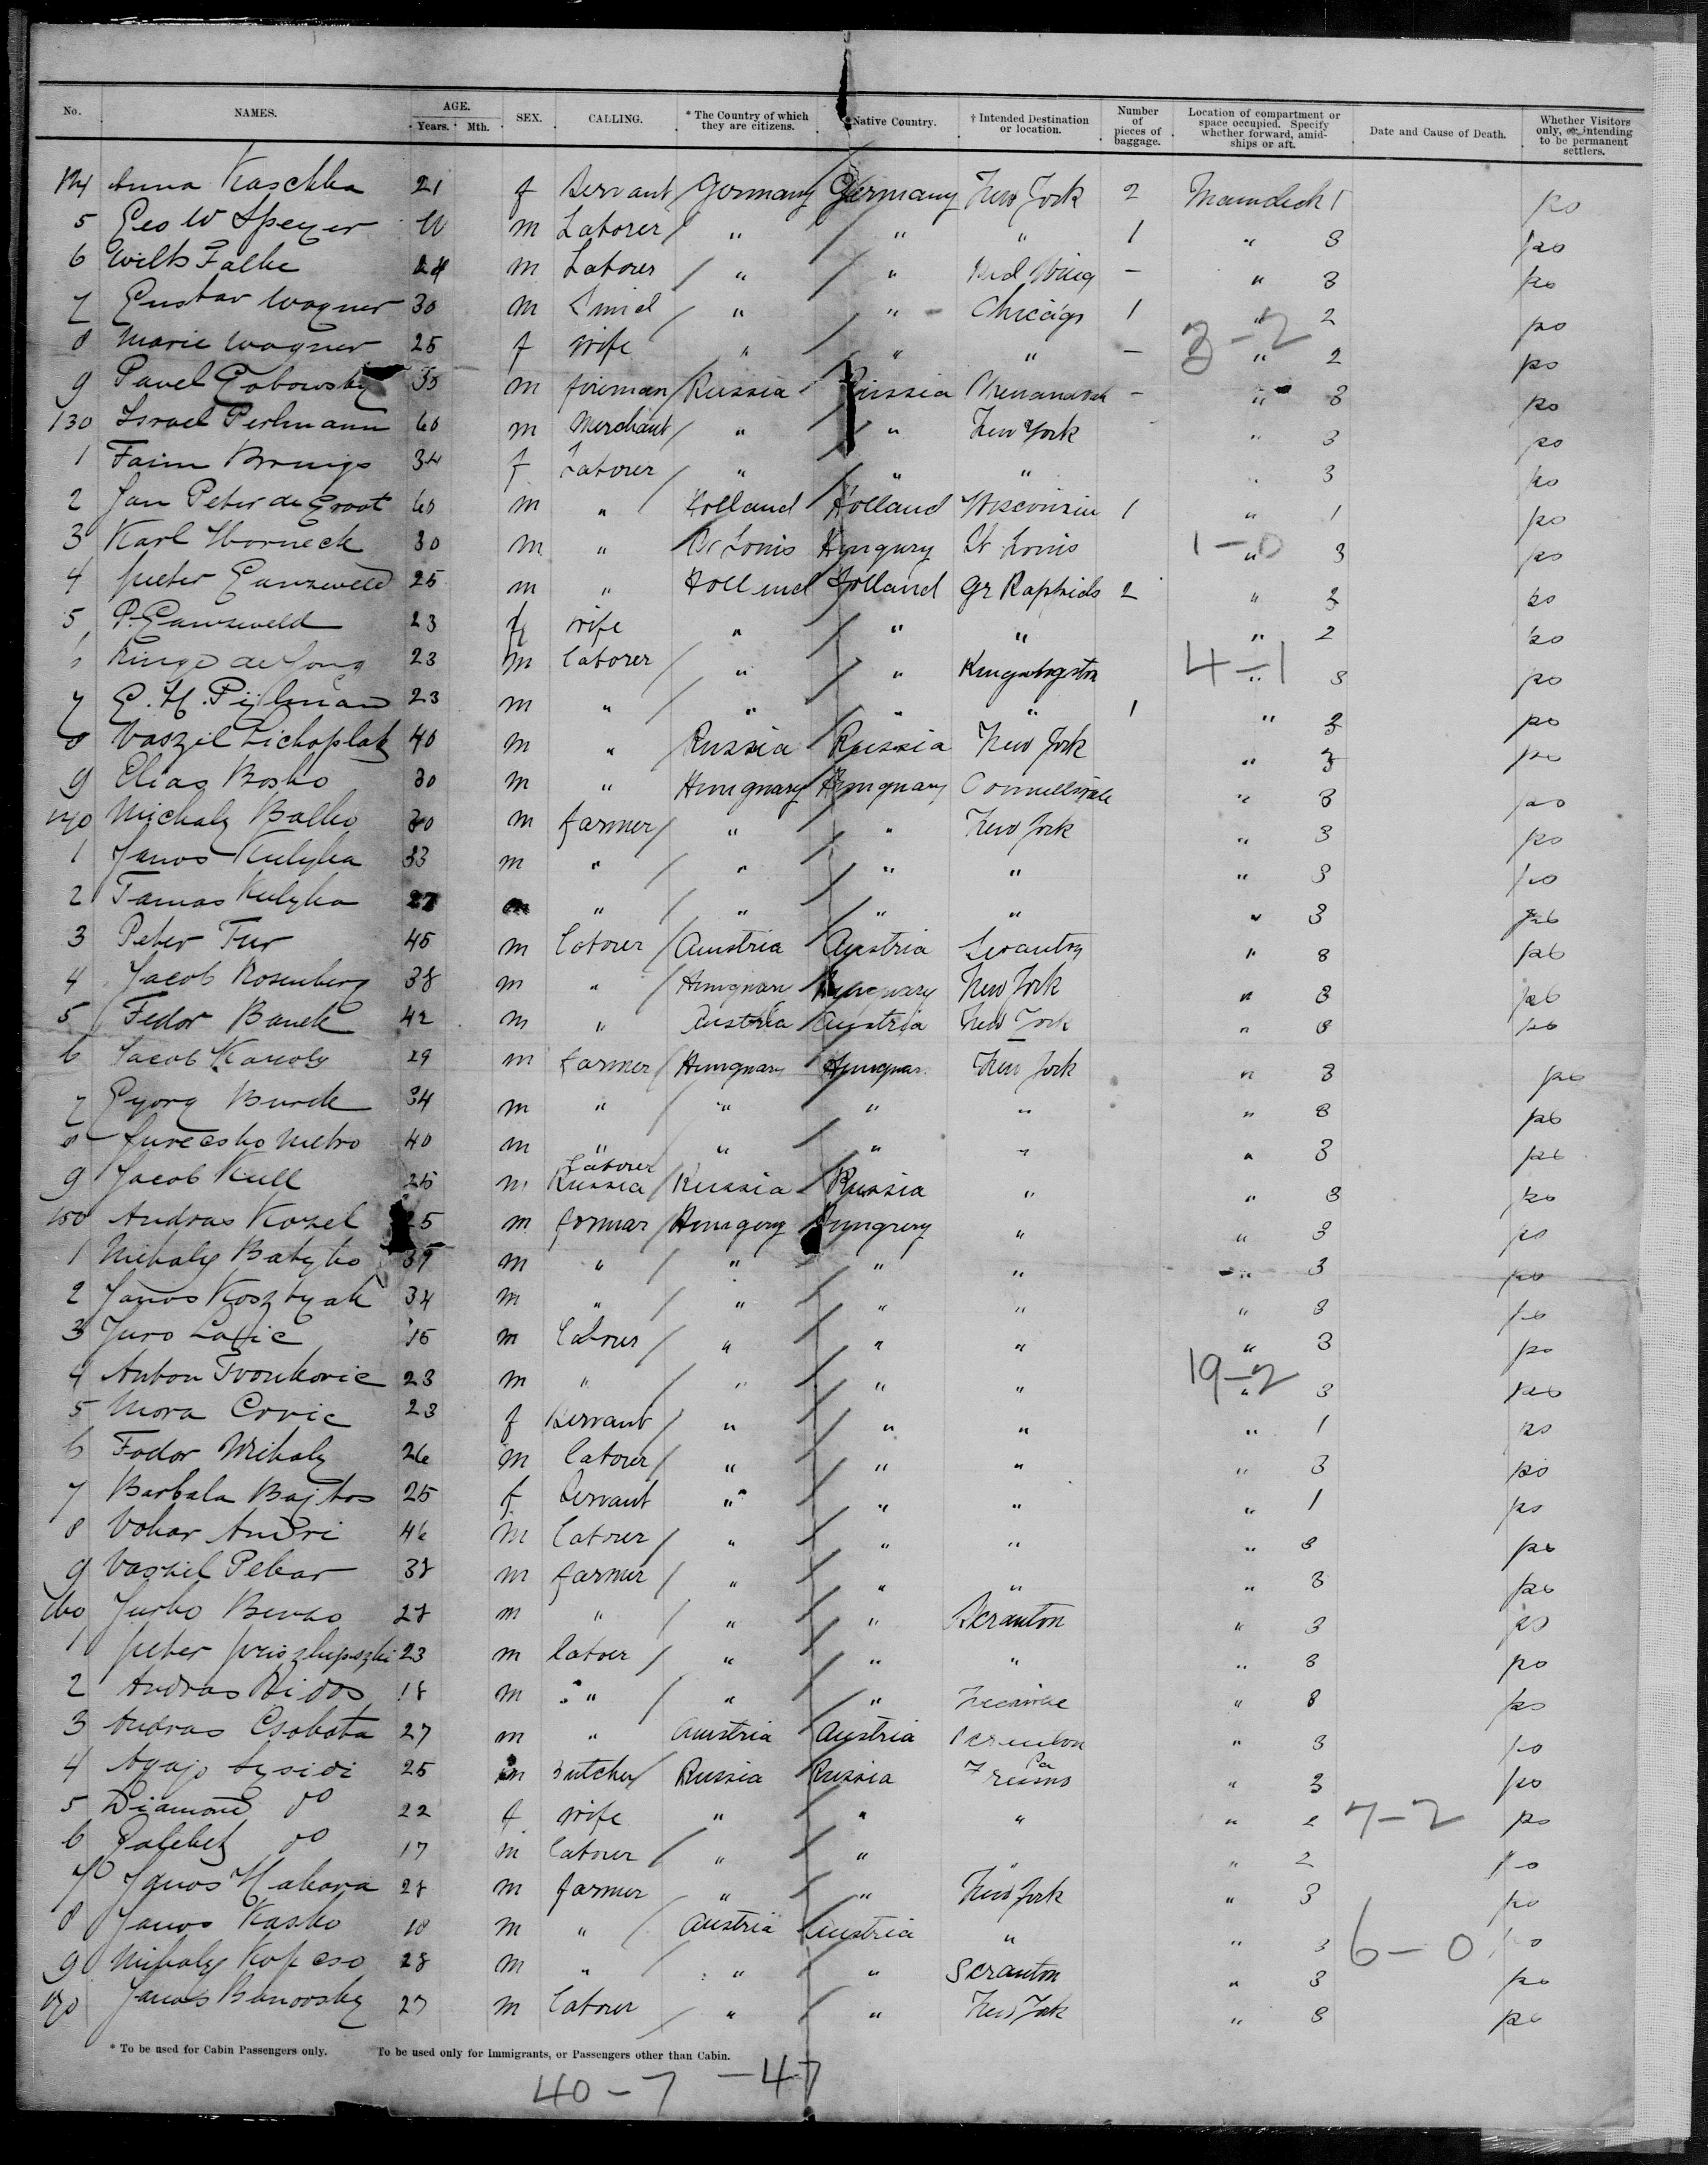 No. NAMES. AGE. Years. Mth. SEX. CALLING. * The Country of which they are citizens. Native Country. † Intended Destination or location. Number of pieces of baggage. Location of compartment or space occupied. Specify whether forward, amidships or aft. Date and Cause of Death. Whether Visitors only, or intending to be permanent settlers.
124 Anna Kaschka 21 f Servant Germany Germany New York 2 Maindeck 1 po
5 Geo W Speyer m Laborer " " " 1 " 3 po
6 Wilts Falke 24 m Laborer " " Red Wing — " 3 po
7 Gustav Wagner 30 m " " Chicago 1 " 2 po
8 Marie Wagner 25 f wife " " " — " 2 po
3-2
9 Pavel 35 m fireman Russia Russia — " 3 po
130 Israel Perlmann 60 m Merchant " " New York " 3 po
1 34 f Laborer " " " " 3 po
2 Jan Peter de Groot 60 m " Holland Holland Wisconsin 1 " 1 po
3 Karl Horneck 30 m " St Louis Hungury St Louis " 3 po
1-0
4 pieter 25 m " Holland Holland Gr Raphids 2 " 2 po
5 P. 23 f wife " " " " 2 po
6 Ringe de Jong 23 m laborer " " " 3 po
4-1
7 E. H. Pijlman 23 m " " " " 1 " 3 po
8 Vaszil Lichoplat 40 m " Russia Russia New York " 3 po
9 Elias Bosko 30 m " Hungnary Hungnary " 3 po
140 Michaly Balko 30 m farmer " " New York " 3 po
1 Janos Kulyka 33 m " " " " " 3 po
2 Tamas Kulyka 27 m " " " " " 3 po
3 Peter Tur 45 m laborer Austria Austria " 3 po
4 Jacob Rosenberg 38 m " Hungnary New York " 3 po
5 Fedor Banek 42 m " Austria Austria New York " 3 po
6 Jacob Karoly 29 m farmer Hungnary Hungnar New York " 3 po
7 Gyorg Burek 34 m " " " " " 3 po
8 Metro 40 m " " " " " 3 po
9 Jacob Kull 25 m Laborer Russia Russia Russia " " 3 po
150 Andras Kozel m farmar Hungery Hungrery " " 3 po
1 Mihaly Batyko 39 m " " " " " 3 po
2 Janos Kosztyak 34 m " " " " " 3 po
3 Juro m laborer " " " " 3 po
4 Anton Ivonkovic 23 m " " " " " 3 po
19-2
5 Mora Covic 23 f Servant " " " " 1 po
6 Fodor Mihaly 26 m laborer " " " " 3 po
7 Barbala Bajtos 25 f Servant " " " " 1 po
8 Vohar Andri 46 m laborer " " " " 3 po
9 Vaszil Pekar 38 m farmer " " " " 3 po
160 Jurko Benko 28 m " " " Scranton " 3 po
1 peter 23 m laborer " " " " 3 po
2 Andras 18 m " " " " 3 po
3 Andras Csobota 27 m " Austria Austria Scranton " 3 po
4 25 m butcher Russia Russia Pa " 3 po
5 Diamond do 22 f wife " " " " 2 po
7-2
6 do 17 m laborer " " " " 2 po
7 Janos Habara 28 m farmer " " New York " 3 po
8 Janos Kasko 18 m " Austria Austria " " 3 po
6-0
9 Mihaly Kopcso 28 m " " " Scranton " 3 po
170 Janos Banovsky 27 m laborer " " New York " 3 po
* To be used for Cabin Passengers only. To be used only for Immigrants, or Passengers other than Cabin.
40-7 -47